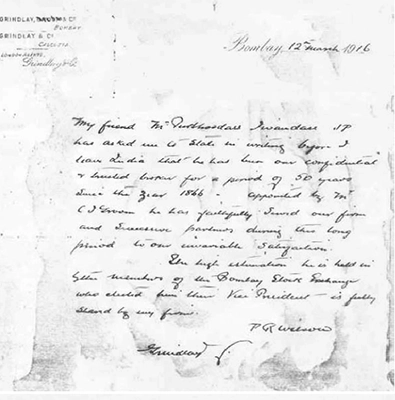 GRINDLAY, & CO
BOMBAY
GRINDLAY & CO
CALCUTTA
LONDON AGENTS,
Grindlay & Co
Bombay, 12th March 1916
My friend Mr Purbhoodass Jivandass JP
has asked me to state in writing before I
leave India that he has been our confidential
& trusted broker for a period of 50 years
since the year 1866 - appointed by Mr
he has faithfully served our firm
and successive partners during this long
period to our invariable satisfaction.
The high estimation he is held in
by the members of the Bombay Stock Exchange
who elected him their Vice President is fully
shared by my firm.
P R Wilson
Grindlay